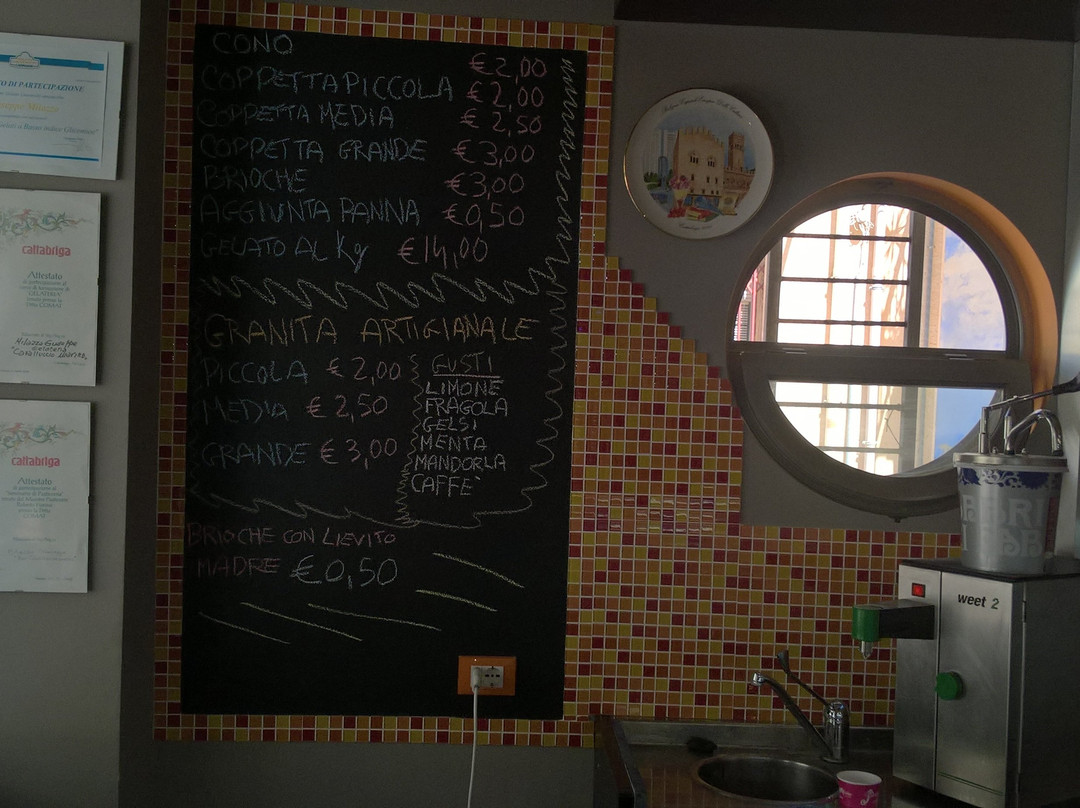 CONO € 2,00
COPPETTA PICCOLA € 2,00
COPPETTA MEDIA € 2,50
COPPETTA GRANDE € 3,00
BRIOCHE € 3,00
AGGIUNTA PANNA € 0,50
GELATO AL Kg € 14,00
GRANITA ARTIGIANALE
PICCOLA € 2,00
MEDIA € 2,50
GRANDE € 3,00
GUSTI
LIMONE
FRAGOLA
GELSI
MENTA
MANDORLA
CAFFE`
BRIOCHE CON LIEVITO
MADRE € 0,50
DI PARTECIPAZIONE
cattabriga
Attestato
cattabriga
Attestato
weet 2